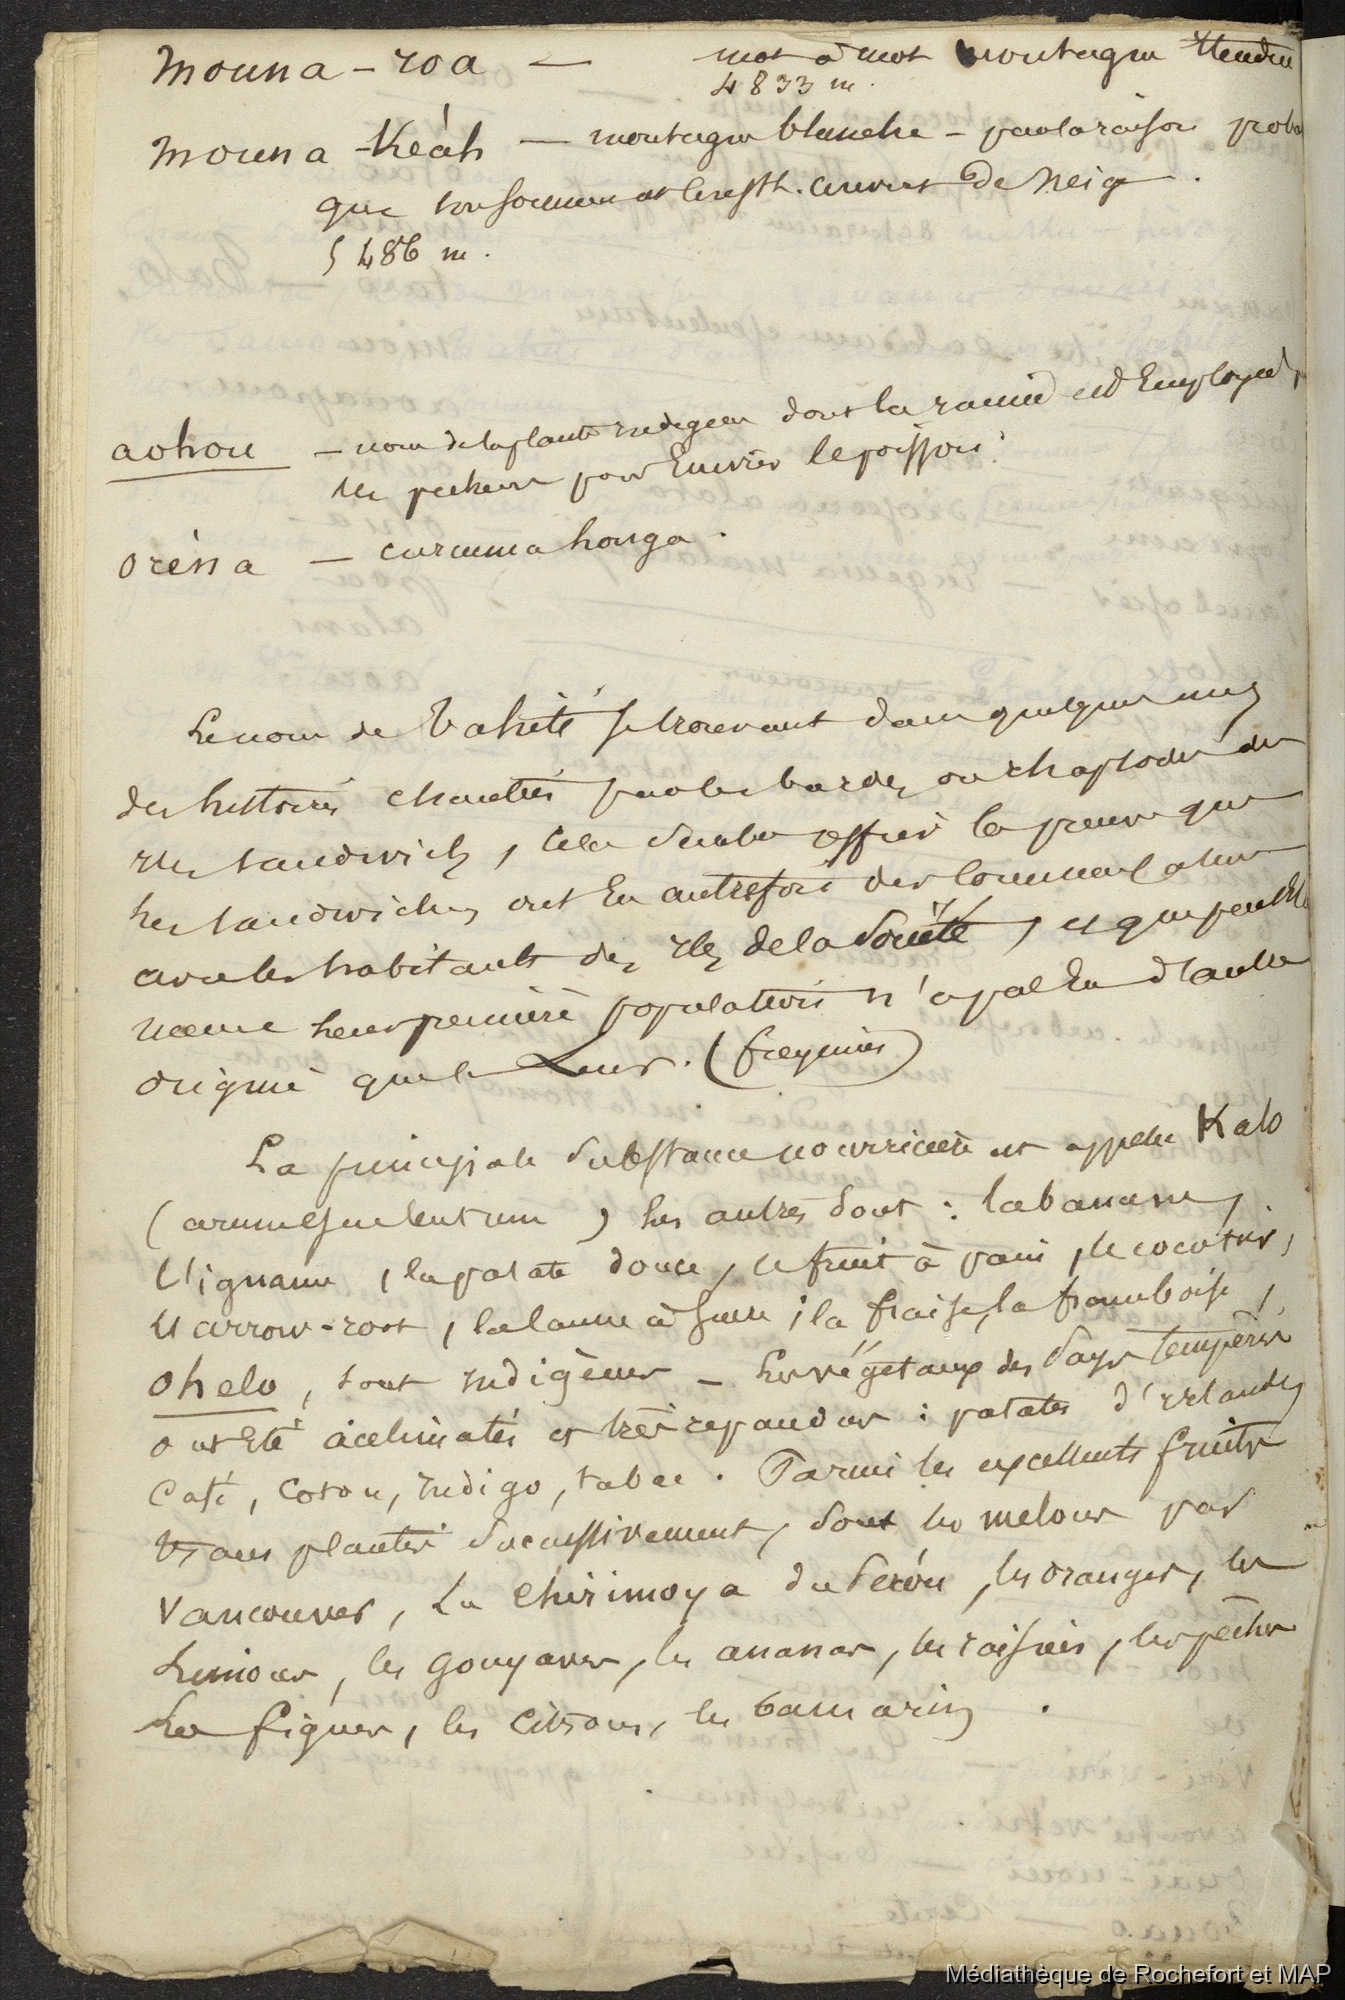 Mouna-roa — mot à mot montagne étendue
4833 m.
Mouna-Kéah — montagne blanche - par la raison proba
que son sommet est couvert de neige.
5486 m.
aohou — nom de la plante indigène dont la racine est employée
les pecheurs pour Enivrer le poisson.
orèna — curcuma longa.
Le nom de Tahïti se trouvant dans quelques unes
des histoires chantées par les bardes ou rhapsodes des
iles sandwich, cela semble offrir la preuve que
les sandwichs ont Eu autrefois des communications
avec les habitants des iles de la Société, et que peut être
même leur première population n'a pas Eu d'autre
origine que la Leur. (freycinet)
La principale substance nourricière est appelée Kalo
(arum esculentum) les autres sont : la banane,
l'igname, la patate douce, le fruit à pain, le cocotier,
l'arrow-root, la canne à sucre, la fraise, la framboise,
ohelo, sont indigènes - Les végétaux des pays tempérés
ont Eté acclimatés et très repandus : patates d'irlande,
café, coton, indigo, tabac. Parmi les excellents fruits
plantés successivement, sont les melons par
Vancouver, La chirimoya du Pérou, les oranges, les
Limons, les goyaves, les ananas, les raisins, les pêches
Les figues, les citrons, les tamarins.
Médiathèque de Rochefort et MAP